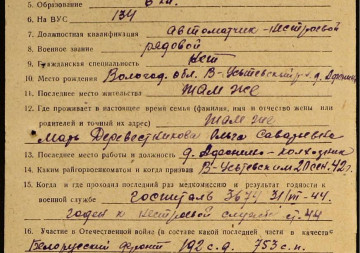 5. Образование 6 кл.
6. На ВУС 134
7. Должностная квалификация автоматчик-нестроевой
8. Военное звание рядовой
9. Гражданская специальность нет
10. Место рождения Вологод. обл. В-Устюгский р. д. Афонино
11. Последнее место жительства Там же
12. Где проживает в настоящее время семья (фамилия, имя и отчество жены или
родителей и точный их адрес) Там же
Мать Деревесникова Ольга
13. Последнее место работы и должность д. Афонино - колхозник
14. Каким райгорвоенкоматом и когда призван В-Устюгским 20 сен. 42 г.
15. Когда и где проходил последний раз медкомиссию и результат годности к
военной службе госпиталь 3674 31/III-44.
годен к нестроевой службе ст. 44
16. Участие в Отечественной войне (в составе какой последней части, в качестве
Белорусский фронт 192 с.д. 753 с.п.